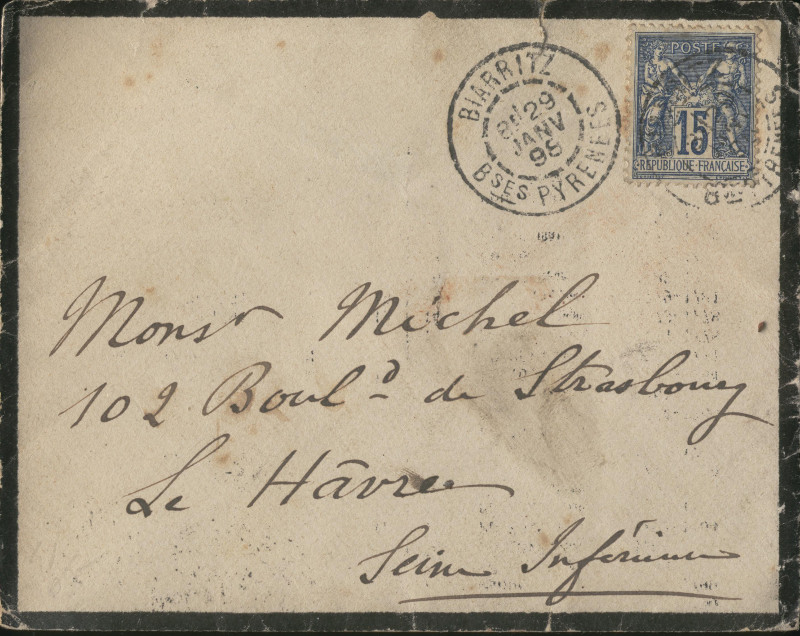 BIARRITZ
29
JANV
98
BSES PYRENEES
POSTE
15
REPUBLIQUE FRANÇAISE
Monsr Michel
102 Bould de Strasbourg
Le Hâvre
Seine Inférieure